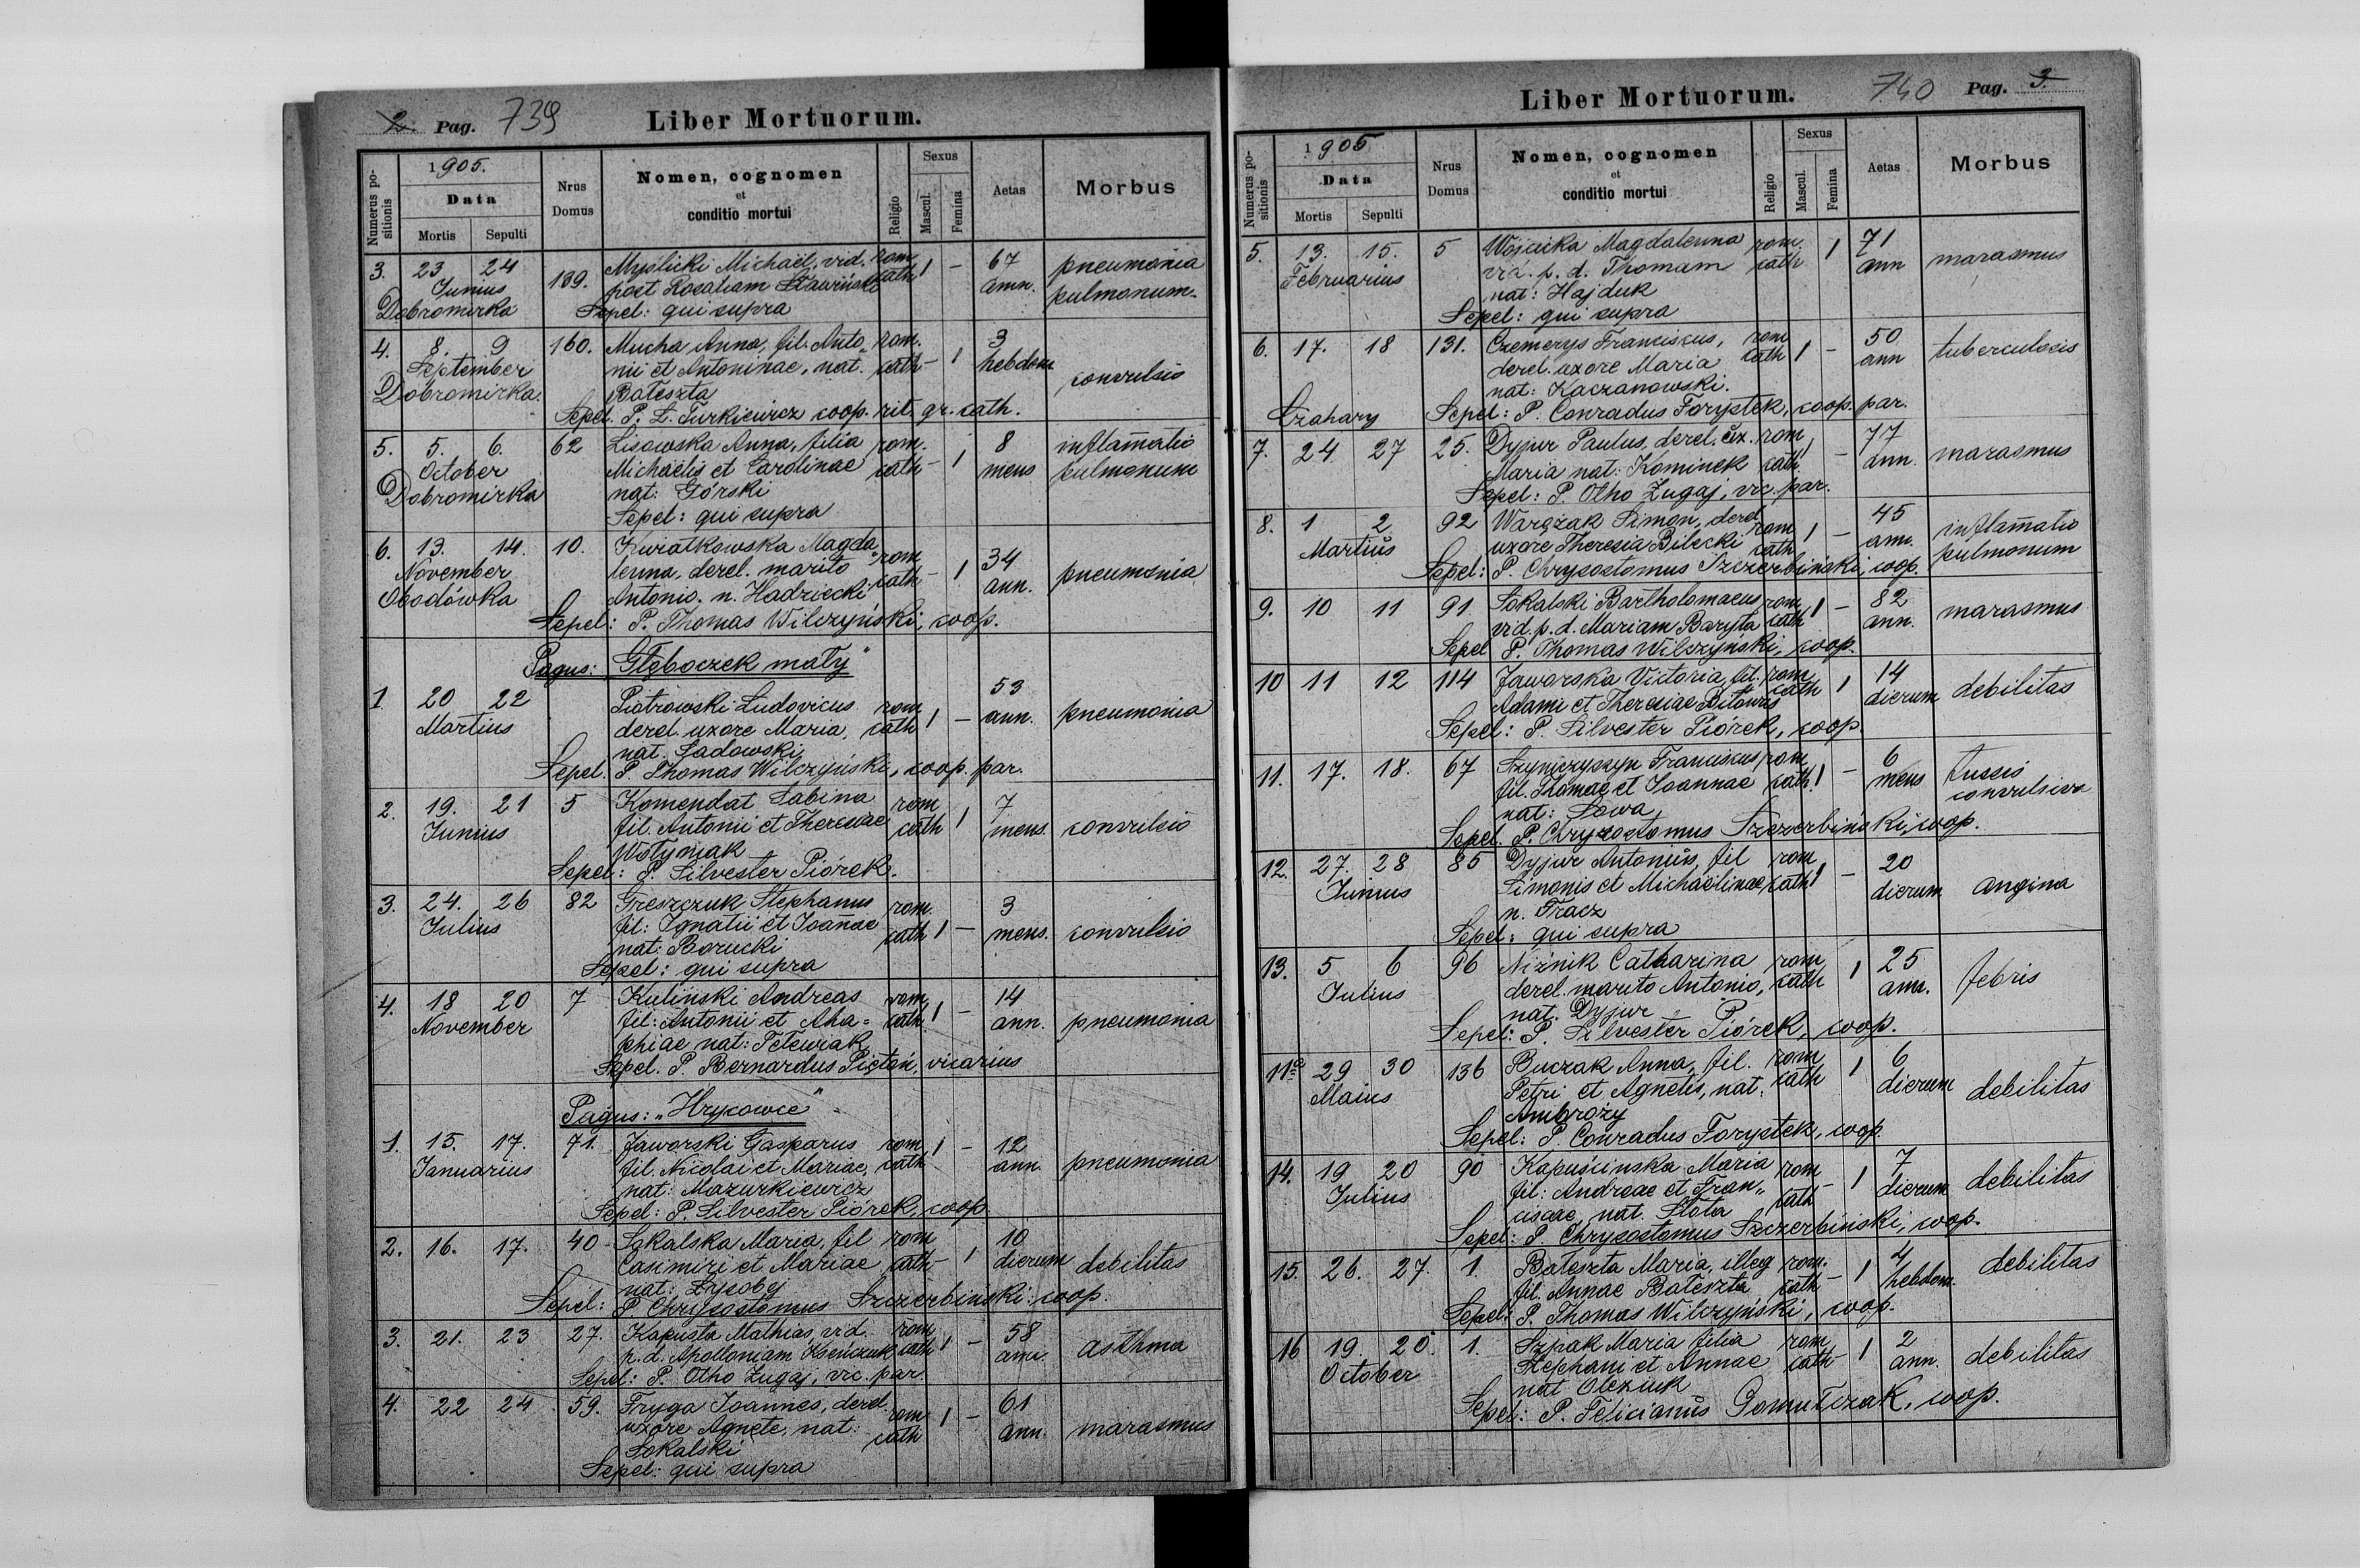 2. Pag. 739 Liber Mortuorum.
Numerus positionis 1905. Data Mortis Sepulti Nrus Domus Nomen, cognomen et conditio mortui Religio Sexus Mascul. Femina Aetas Morbus
3. 23 24 139. Myślicki Michaël, vid. rom. 1 – 67 pneumonia
Junius post Rosaliam Sławiński cath ann. pulmonum
Dobromirka Sepel: qui supra
4. 8. 9 160. Mucha Anna, fil. Anto- rom. 3
September nii et Antoninae, nat. cath – 1 hebdom convulsio
Dobromirka. Bateszta
Sepel. P. L. Turkiewicz coop. rit. gr. cath.
5. 5. 6. 62 Lisowska Anna, filia rom. 8 inflamatio
October Michaëlis et Carolinae cath – 1 mens pulmonum
Dobromirka nat: Górski
Sepel: qui supra
6. 13. 14. 10. Kwiatkowska Magda- rom 34
November lenna, derel. marito cath – 1 ann. pneumonia
Obodówka Antonio. n. Hadziecki
Sepel: P. Thomas Wilczyński, coop.
Pagus: "Głęboczek mały"
1 20 22 Piotrowski Ludovicus rom 53
Martius derel. uxore Maria, cath 1 – ann. pneumonia
nat. Sadowski
Sepel. P. Thomas Wilczyński, coop. par.
2. 19. 21 5 Komendat Sabina rom 7
Junius fil. Antonii et Theresiae cath 1 mens. convulsio
Wołyniak
Sepel: P. Silvester Piórek.
3. 24. 26 82 Greszczuk Stephanus rom. 3
Julius fil: Ignatii et Joañae cath 1 – mens. convulsio
nat: Borucki
Sepel: qui supra
4. 18 20 7 Kuliński Andreas rom 14
November fil: Antonii et Aha= cath. 1 – ann. pneumonia
phiae nat: Telewiak
Sepel. P. Bernardus Pięton, vicarius
Pagus: "Hrycowce"
1. 15. 17. 71. Jaworski Gasparus rom 1 – 12
Januarius fil. Nicolai et Mariae, cath ann. pneumonia
nat: Mazurkiewicz
Sepel: P. Silvester Piórek, coop
2. 16. 17. 40 Sokalska Maria, fil rom 10
Casimiri et Mariae cath – 1 dierum debilitas
nat: Łysobej
Sepel: P Chrysostomus Szczerbiński coop.
3. 21. 23 27. Kapusta Mathias, vid. rom 58
p. d. Apolloniam Kseńczuk cath 1 – ann. asthma
Sepel: P. Otho Zugaj, vic. par.
4. 22 24 59. Fryga Joannes, derel. 61
uxore Agnete, nat: rom cath 1 – ann. marasmus
Sokalski
Sepel: qui supra
Liber Mortuorum. 740 Pag. 3.
Numerus positionis 1905 Data Mortis Sepulti Nrus Domus Nomen, cognomen et conditio mortui Religio Sexus Mascul. Femina Aetas Morbus
5. 13. 15. 5 Wójcicka Magdalenna rom. 1 71
Februarius vid. p. d. Thomam cath ann marasmus
nat: Hajduk
Sepel: qui supra
6. 17. 18 131. Czemerys Franciscus, rom 50
derel. uxore Maria cath 1 – ann tuberculosis
nat: Kaczanowski.
Czahary Sepel: P. Conradus Forystek, coop. par.
7. 24 27 25. Dyjur Paulus, derel. ux. rom 77
Maria nat: Kominek cath 1 – ann. marasmus
Sepel: P. Otho Zugaj, vic. par.
8. 1 2 92 Wargzak Simon, derel rom 1 – 45 inflamatio
Martius uxore Theresia Bilecki cath ann. pulmonum
Sepel: P. Chrysostomus Szczerbiński, coop.
9. 10 11 91 Sokalski Bartholomaeus rom 1 – 82
vid. p. d. Mariam Baryta cath ann. marasmus
Sepel P. Thomas Wilczyński, coop.
10 11 12 114 Jaworska Victoria, fil. rom 1 14
Adami et Theresiae Bitowus cath dierum debilitas
Sepel: P. Silvester Piórek, coop.
11. 17. 18. 67 Szyniczyszyn Franciscus rom 6 tussis
fil. Thomae et Joannae cath. 1 – mens convulsiva
nat: Sowa
Sepel. P. Chrysostomus Szczerbiński, coop.
12. 27. 28 85 Dyjur Antonius, fil rom 20
Junius Simonis et Michaëlinae, cath 1 – dierum angina
n. Tracz
Sepel: qui supra
13. 5 6 96 Niżnik Catharina rom 1 25
Julius derel. marito Antonio, cath ann. febris
nat. Dyjur
Sepel: P. Silvester Piórek, coop.
11a 29 30 136 Buczak Anna, fil. rom 1 6
Maius Petri et Agnetis, nat: cath dierum debilitas
Ambroży
Sepel: P. Conradus Forystek, coop.
14. 19 20 90 Kapuścinska Maria rom 7
Julius fil: Andreae et Fran- cath – 1 dierum debilitas
ciscae, nat. Słota
Sepel: P. Chrysostomus Szczerbiński, coop.
15. 26. 27. 1. Bateszta Maria, illeg rom. 4
fil. Annae Bateszta cath – 1 hebdom. debilitas
Sepel: P. Thomas Wilczyński, coop.
16 19. 20. 1. Szpak Maria filia rom 2
October Stephani et Annae cath – 1 ann. debilitas
nat Olczuk
Sepel: P. Felicianus Gomułczak, coop.